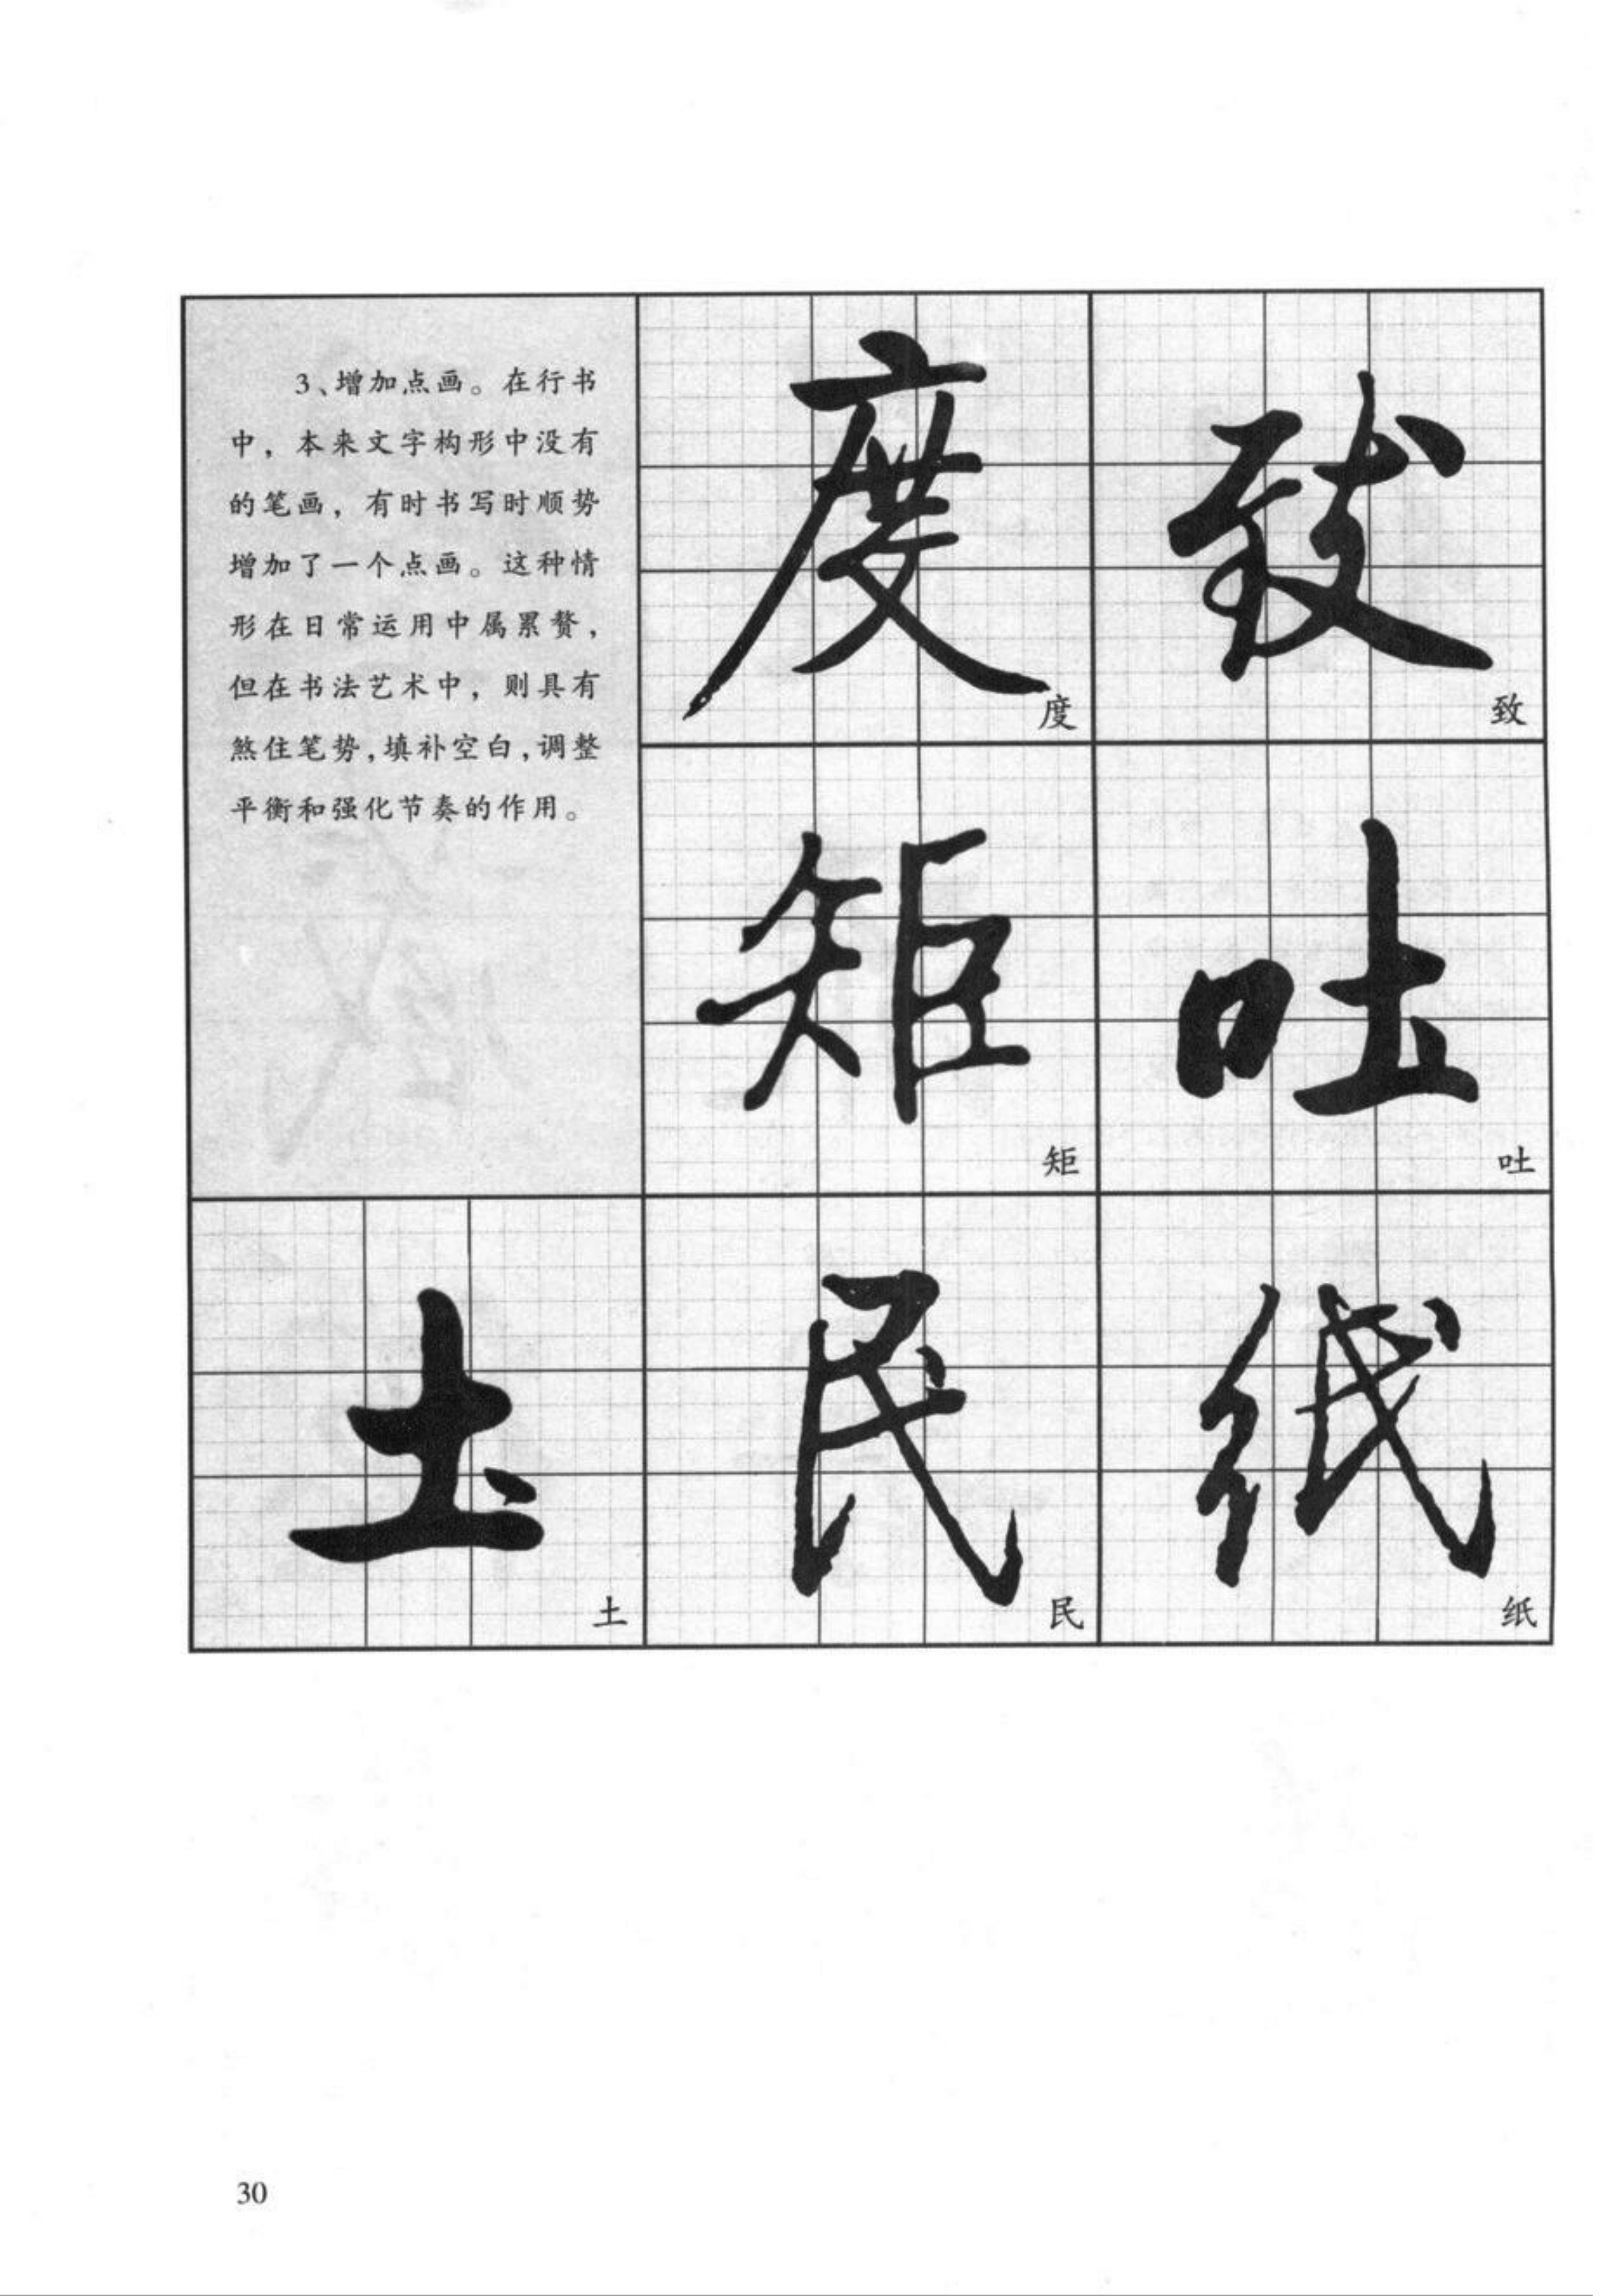 3、增加点画。在行书
中，本来文字构形中没有
的笔画，有时书写时顺势
增加了一个点画。这种情
形在日常运用中属累赘，
但在书法艺术中，则具有
煞住笔势，填补空白，调整
平衡和强化节奏的作用。
度
度
致
致
矩
矩
吐
吐
土
土
民
民
纸
纸
30